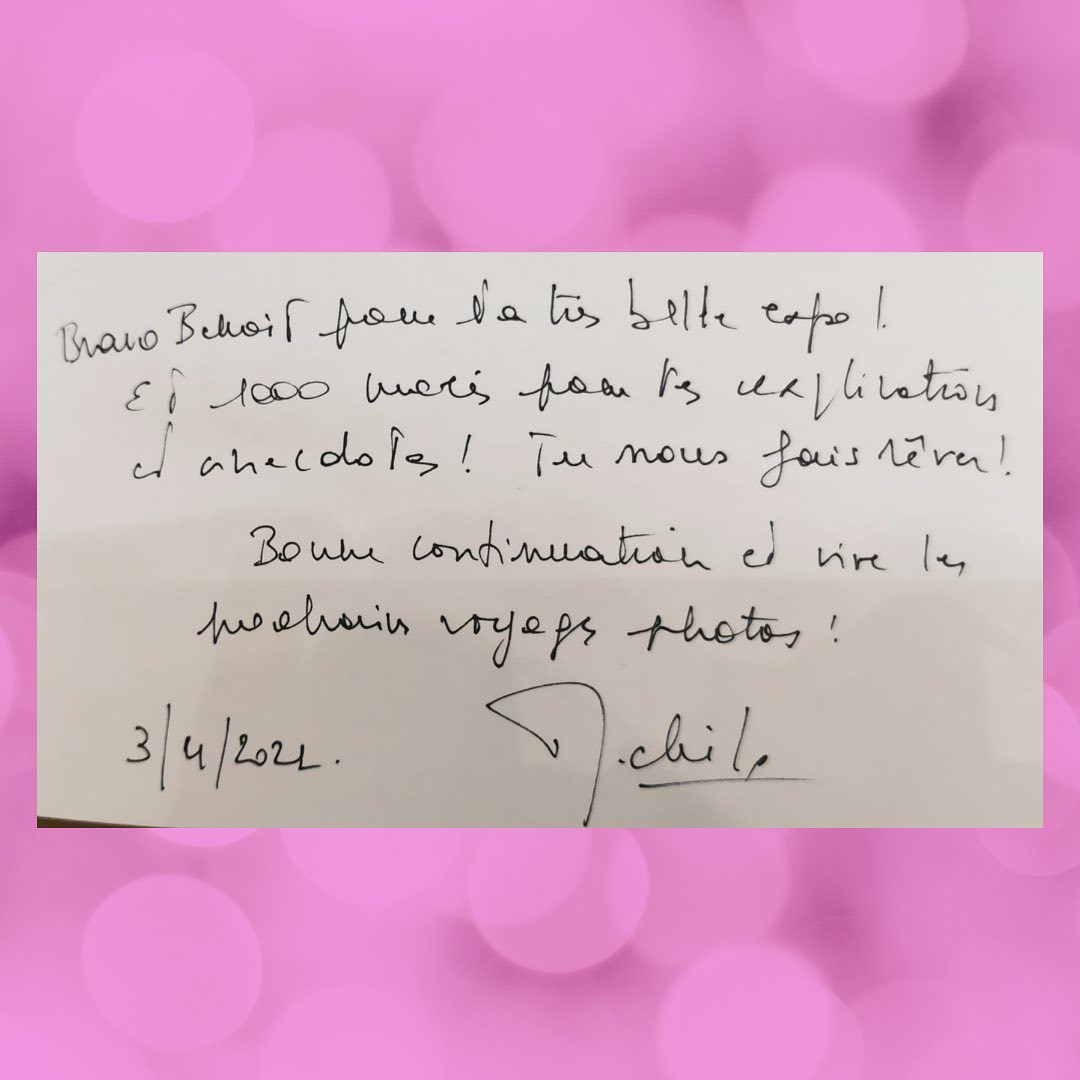 Bravo Benoit pour ta très belle expo !
Et 1000 mercis pour tes explications
et anecdotes ! Tu nous fais rêver !
Bonne continuation et vive les
prochains voyages photos !
3/4/2022.